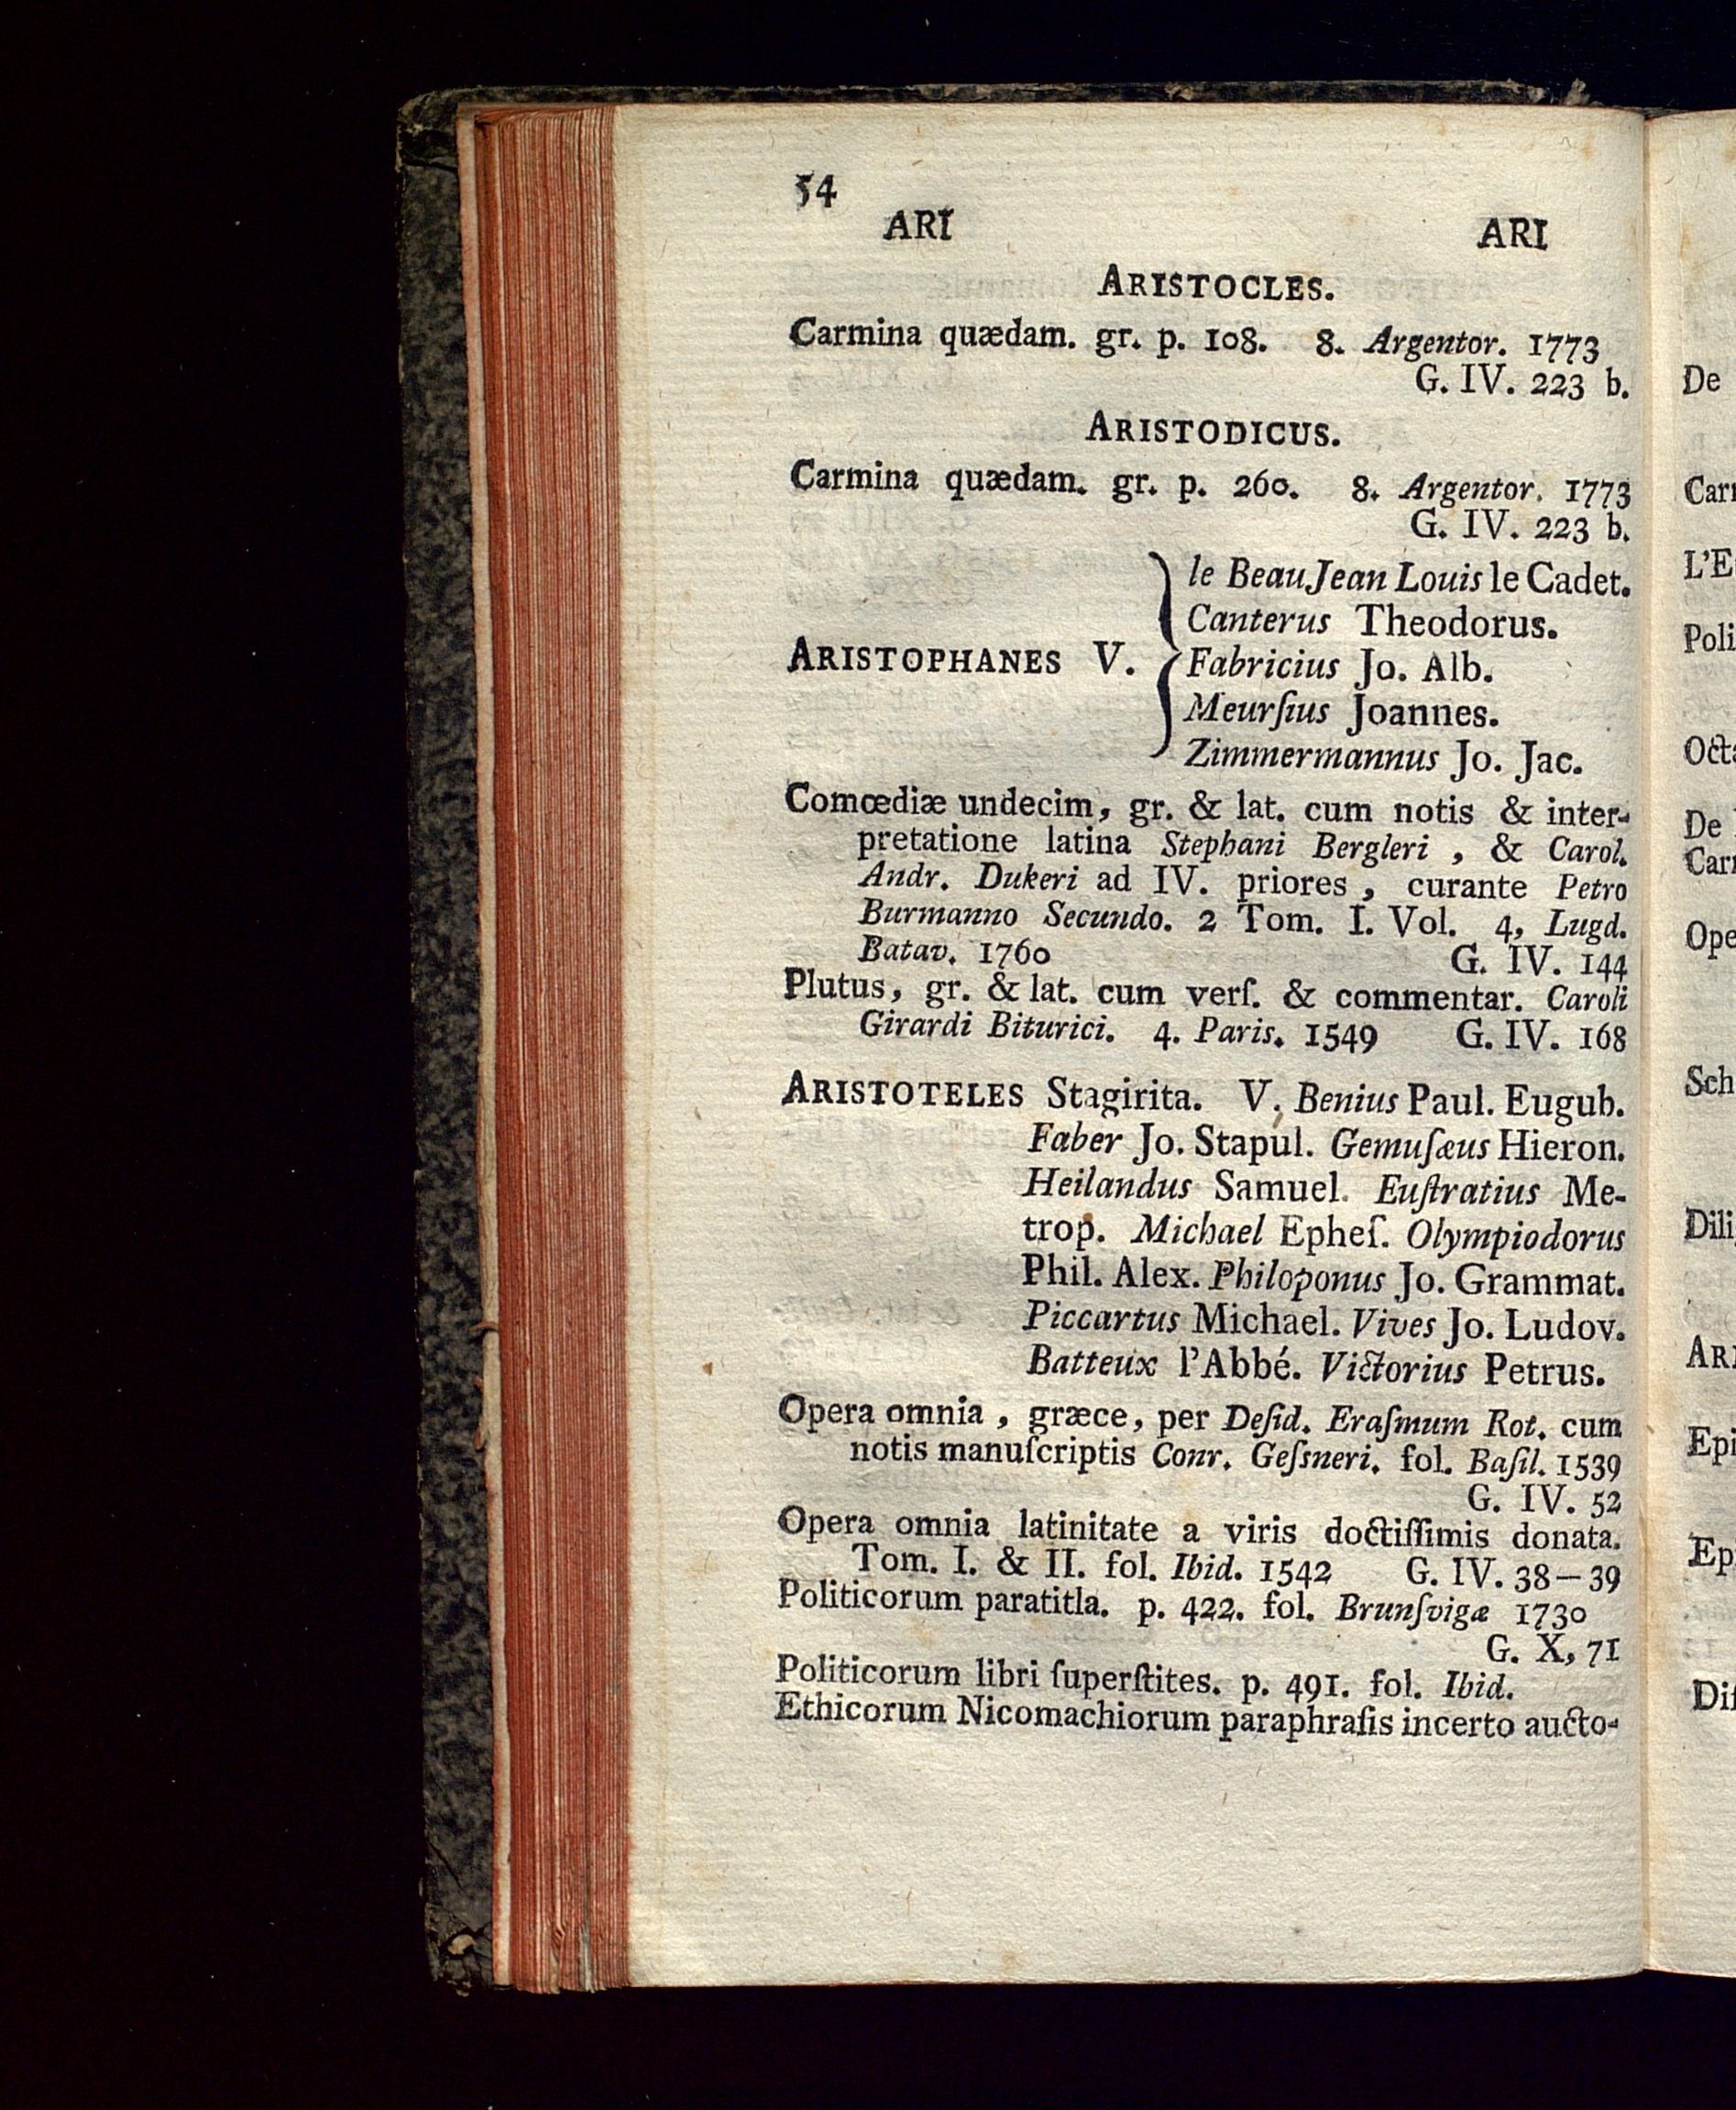 54
ARI ARI
ARISTOCLES.
Carmina quædam. gr. p. 108. 8. Argentor. 1773
G. IV. 223 b.
ARISTODICUS.
Carmina quædam. gr. p. 260. 8. Argentor. 1773
G. IV. 223 b.
le Beau Jean Louis le Cadet.
Canterus Theodorus.
ARISTOPHANES V. Fabricius Jo. Alb.
Meurſius Joannes.
Zimmermannus Jo. Jac.
Comœdiæ undecim, gr. & lat. cum notis & inter-
pretatione latina Stephani Bergleri , & Carol.
Andr. Dukeri ad IV. priores , curante Petro
Burmanno Secundo. 2 Tom. I. Vol. 4, Lugd.
Batav. 1760 G. IV. 144
Plutus, gr. & lat. cum verſ. & commentar. Caroli
Girardi Biturici. 4. Paris. 1549 G. IV. 168
ARISTOTELES Stagirita. V. Benius Paul. Eugub.
Faber Jo. Stapul. Gemuſæus Hieron.
Heilandus Samuel. Euſtratius Me-
trop. Michael Epheſ. Olympiodorus
Phil. Alex. Philoponus Jo. Grammat.
Piccartus Michael. Vives Jo. Ludov.
Batteux l'Abbé. Victorius Petrus.
Opera omnia , græce, per Deſid. Eraſmum Rot. cum
notis manuſcriptis Conr. Geſsneri. fol. Baſil. 1539
G. IV. 52
Opera omnia latinitate a viris doctiſſimis donata.
Tom. I. & II. fol. Ibid. 1542 G. IV. 38–39
Politicorum paratitla. p. 422. fol. Brunſvigæ 1730
G. X, 71
Politicorum libri ſuperſtites. p. 491. fol. Ibid.
Ethicorum Nicomachiorum paraphraſis incerto aucto-
De
L'E
De